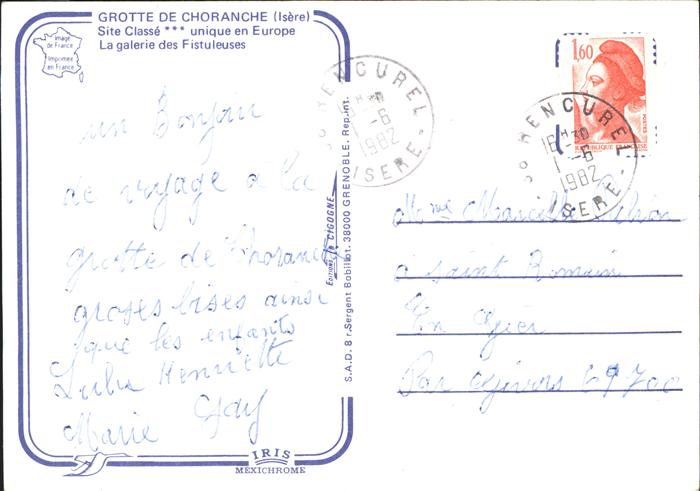 GROTTE DE CHORANCHE (Isère)
Site Classé *** unique en Europe
La galerie des Fistuleuses
Image
de France
Imprimée
en France
un Bonjour
de voyage a la
grotte de Choranche
groses bises ainsi
que les enfants
Lulu Henriette
Marie
IRIS
MEXICHROME
Editions de CIGOGNE
S.A.D. 8 r. Sergent Bobillot. 38000 GRENOBLE. Rep. int.
38 RENCUREL
16H30
1-6
1982
ISERE
1,60
POSTES
REPUBLIQUE FRANÇAISE
38 RENCUREL
16H30
1-6
1982
ISERE
Mme
a saint Romain
En Gier
Par Givors 69700